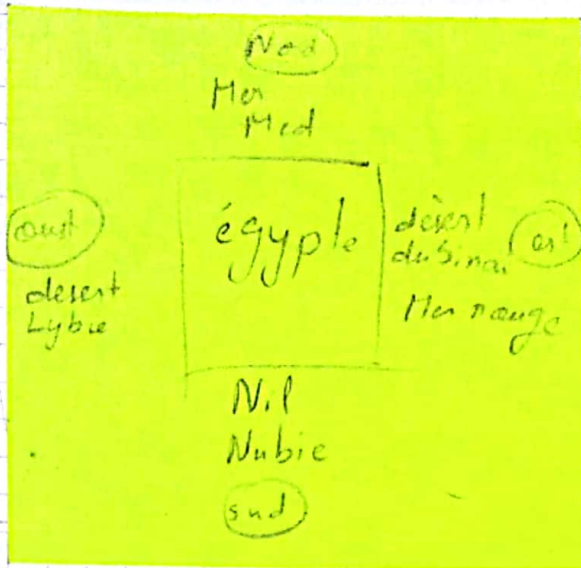 Nod
Mer
Med
égypte
ouest
desert
Lybie
désert
du Sinai
est
Mer rouge
Nil
Nubie
sud